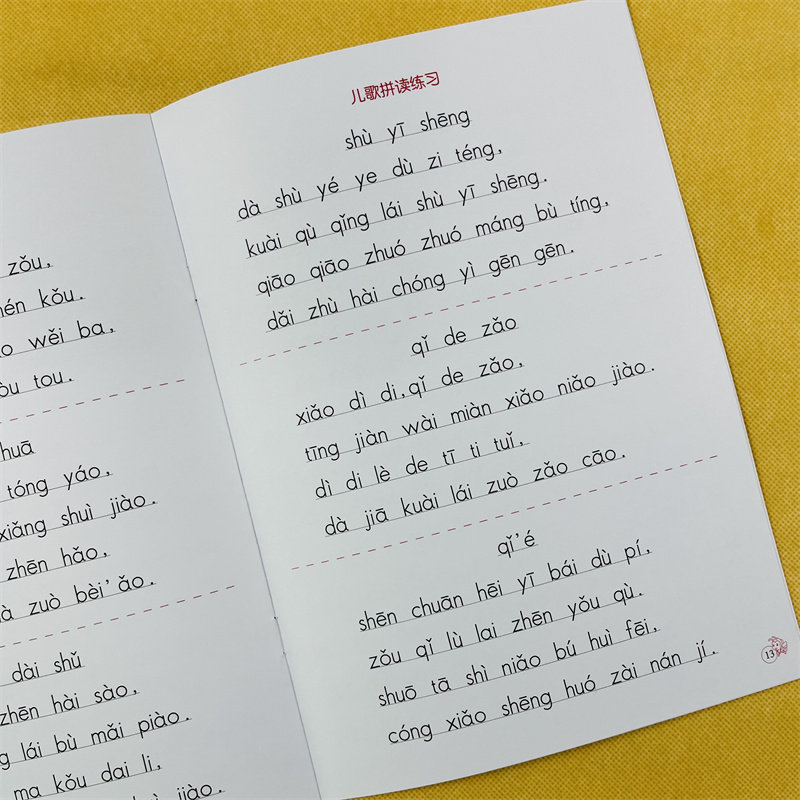 zǒu,
kǒu.
wěi ba,
tou.
tóng yáo,
xiǎng shuì jiào.
zhēn hǎo,
zuò bèi'ǎo.
dài shǔ
zhēn hài sào,
lái bù mǎi piào.
ma kǒu dai li,
jiào.
儿歌拼读练习
shù yī shēng
dà shù yé ye dù zi téng,
kuài qù qǐng lái shù yī shēng.
qiāo qiāo zhuó zhuó máng bù tíng,
dǎi zhù hài chóng yì gēn gēn.
qǐ de zǎo
xiǎo dì di,qǐ de zǎo,
tīng jiàn wài miàn xiǎo niǎo jiào.
dì di lè de tī ti tuǐ,
dà jiā kuài lái zuò zǎo cāo.
qǐ'é
shēn chuān hēi yī bái dù pí,
zǒu qǐ lù lai zhēn yǒu qù.
shuō tā shì niǎo bú huì fēi,
cóng xiǎo shēng huó zài nán jí.
13